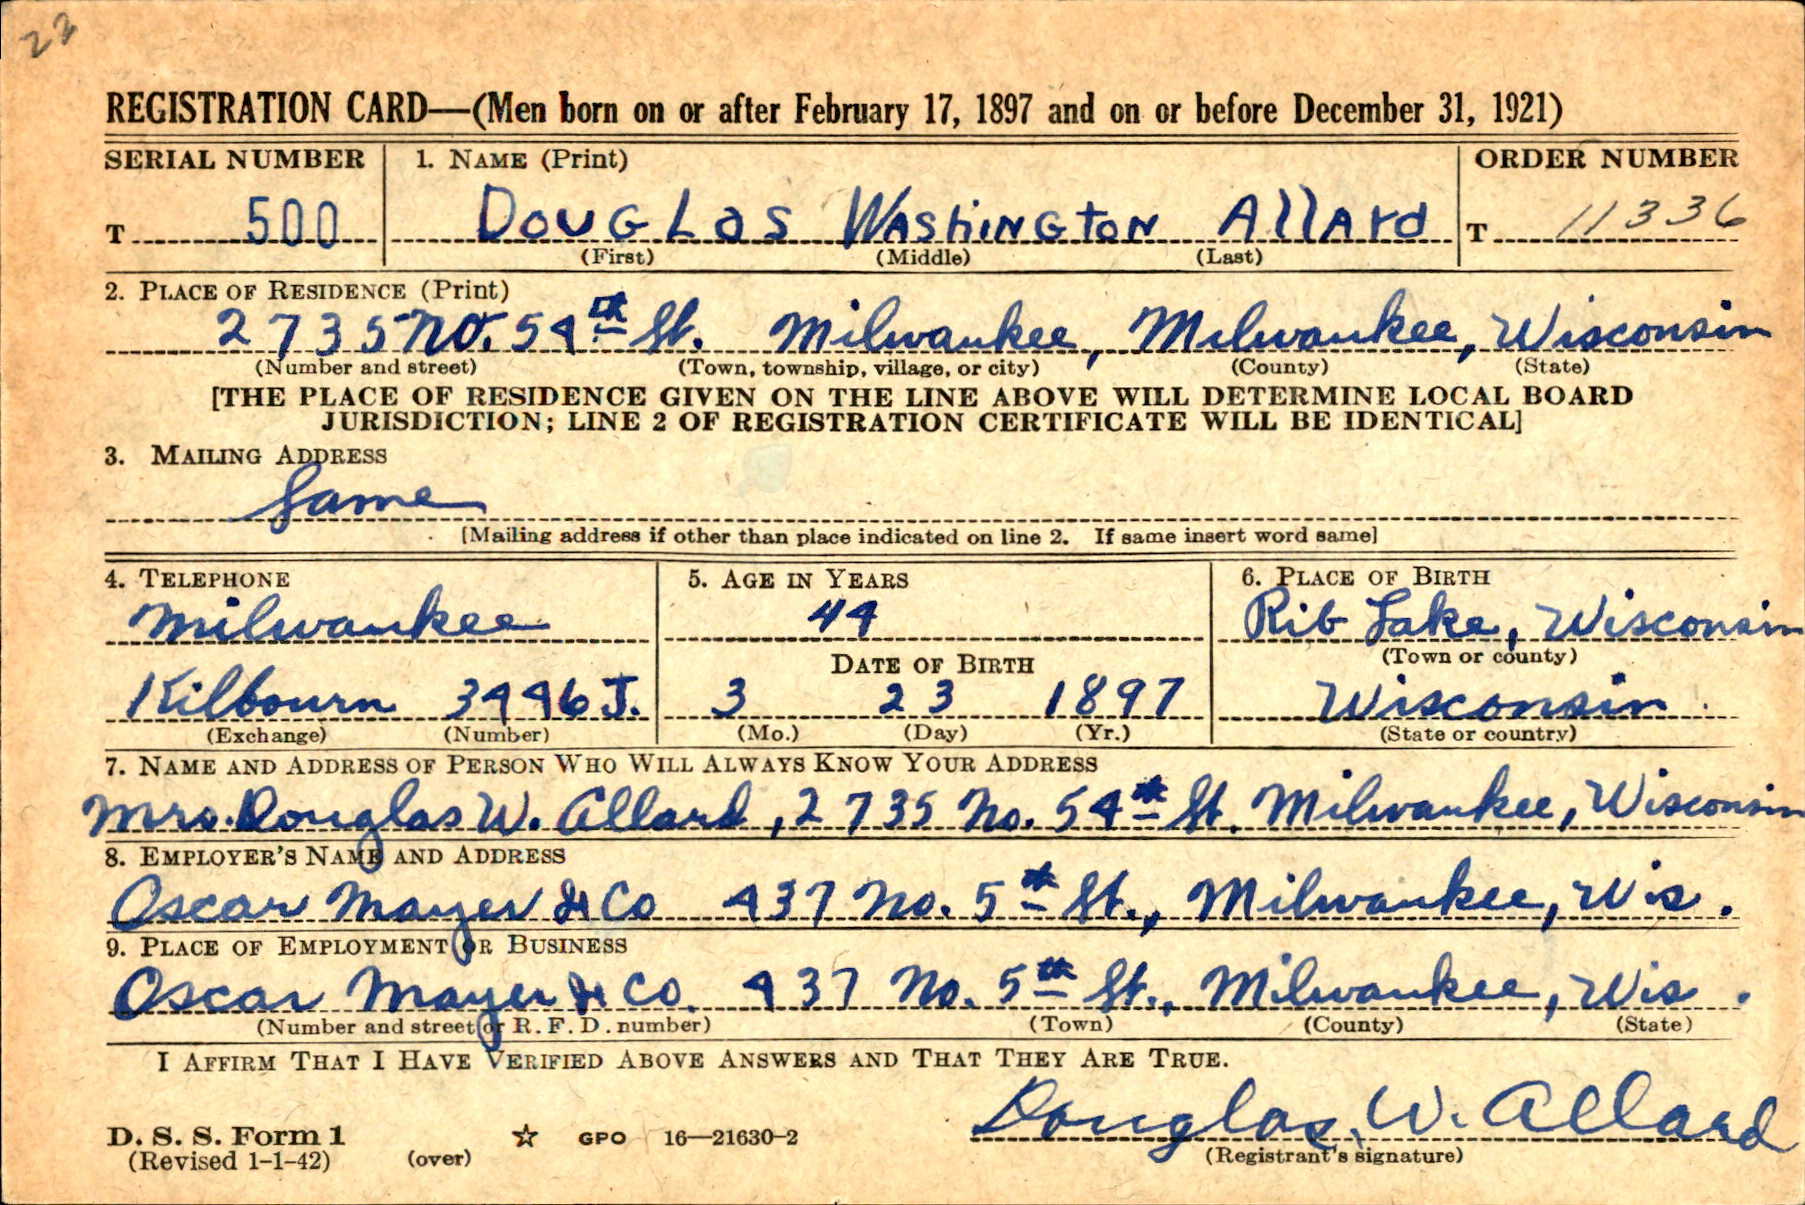 22
REGISTRATION CARD—(Men born on or after February 17, 1897 and on or before December 31, 1921)
SERIAL NUMBER 1. NAME (Print) ORDER NUMBER
T 500 Douglas Washington Allard T 11336
(First) (Middle) (Last)
2. PLACE OF RESIDENCE (Print)
2735 No. 54th St. Milwaukee, Milwaukee, Wisconsin
(Number and street) (Town, township, village, or city) (County) (State)
[THE PLACE OF RESIDENCE GIVEN ON THE LINE ABOVE WILL DETERMINE LOCAL BOARD
JURISDICTION; LINE 2 OF REGISTRATION CERTIFICATE WILL BE IDENTICAL]
3. MAILING ADDRESS
Same
[Mailing address if other than place indicated on line 2. If same insert word same]
4. TELEPHONE 5. AGE IN YEARS 6. PLACE OF BIRTH
Milwaukee 44 Rib Lake, Wisconsin
DATE OF BIRTH (Town or county)
Kilbourn 3446 J. 3 23 1897 Wisconsin
(Exchange) (Number) (Mo.) (Day) (Yr.) (State or country)
7. NAME AND ADDRESS OF PERSON WHO WILL ALWAYS KNOW YOUR ADDRESS
Mrs. Douglas W. Allard, 2735 No. 54th St. Milwaukee, Wisconsin
8. EMPLOYER'S NAME AND ADDRESS
Oscar Mayer & Co 437 No. 5th St., Milwaukee, Wis.
9. PLACE OF EMPLOYMENT OR BUSINESS
Oscar Mayer & Co. 437 No. 5th St., Milwaukee, Wis.
(Number and street or R. F. D. number) (Town) (County) (State)
I AFFIRM THAT I HAVE VERIFIED ABOVE ANSWERS AND THAT THEY ARE TRUE.
Douglas W. Allard
D. S. S. Form 1 ☆ GPO 16—21630-2
(Revised 1-1-42) (over) (Registrant's signature)